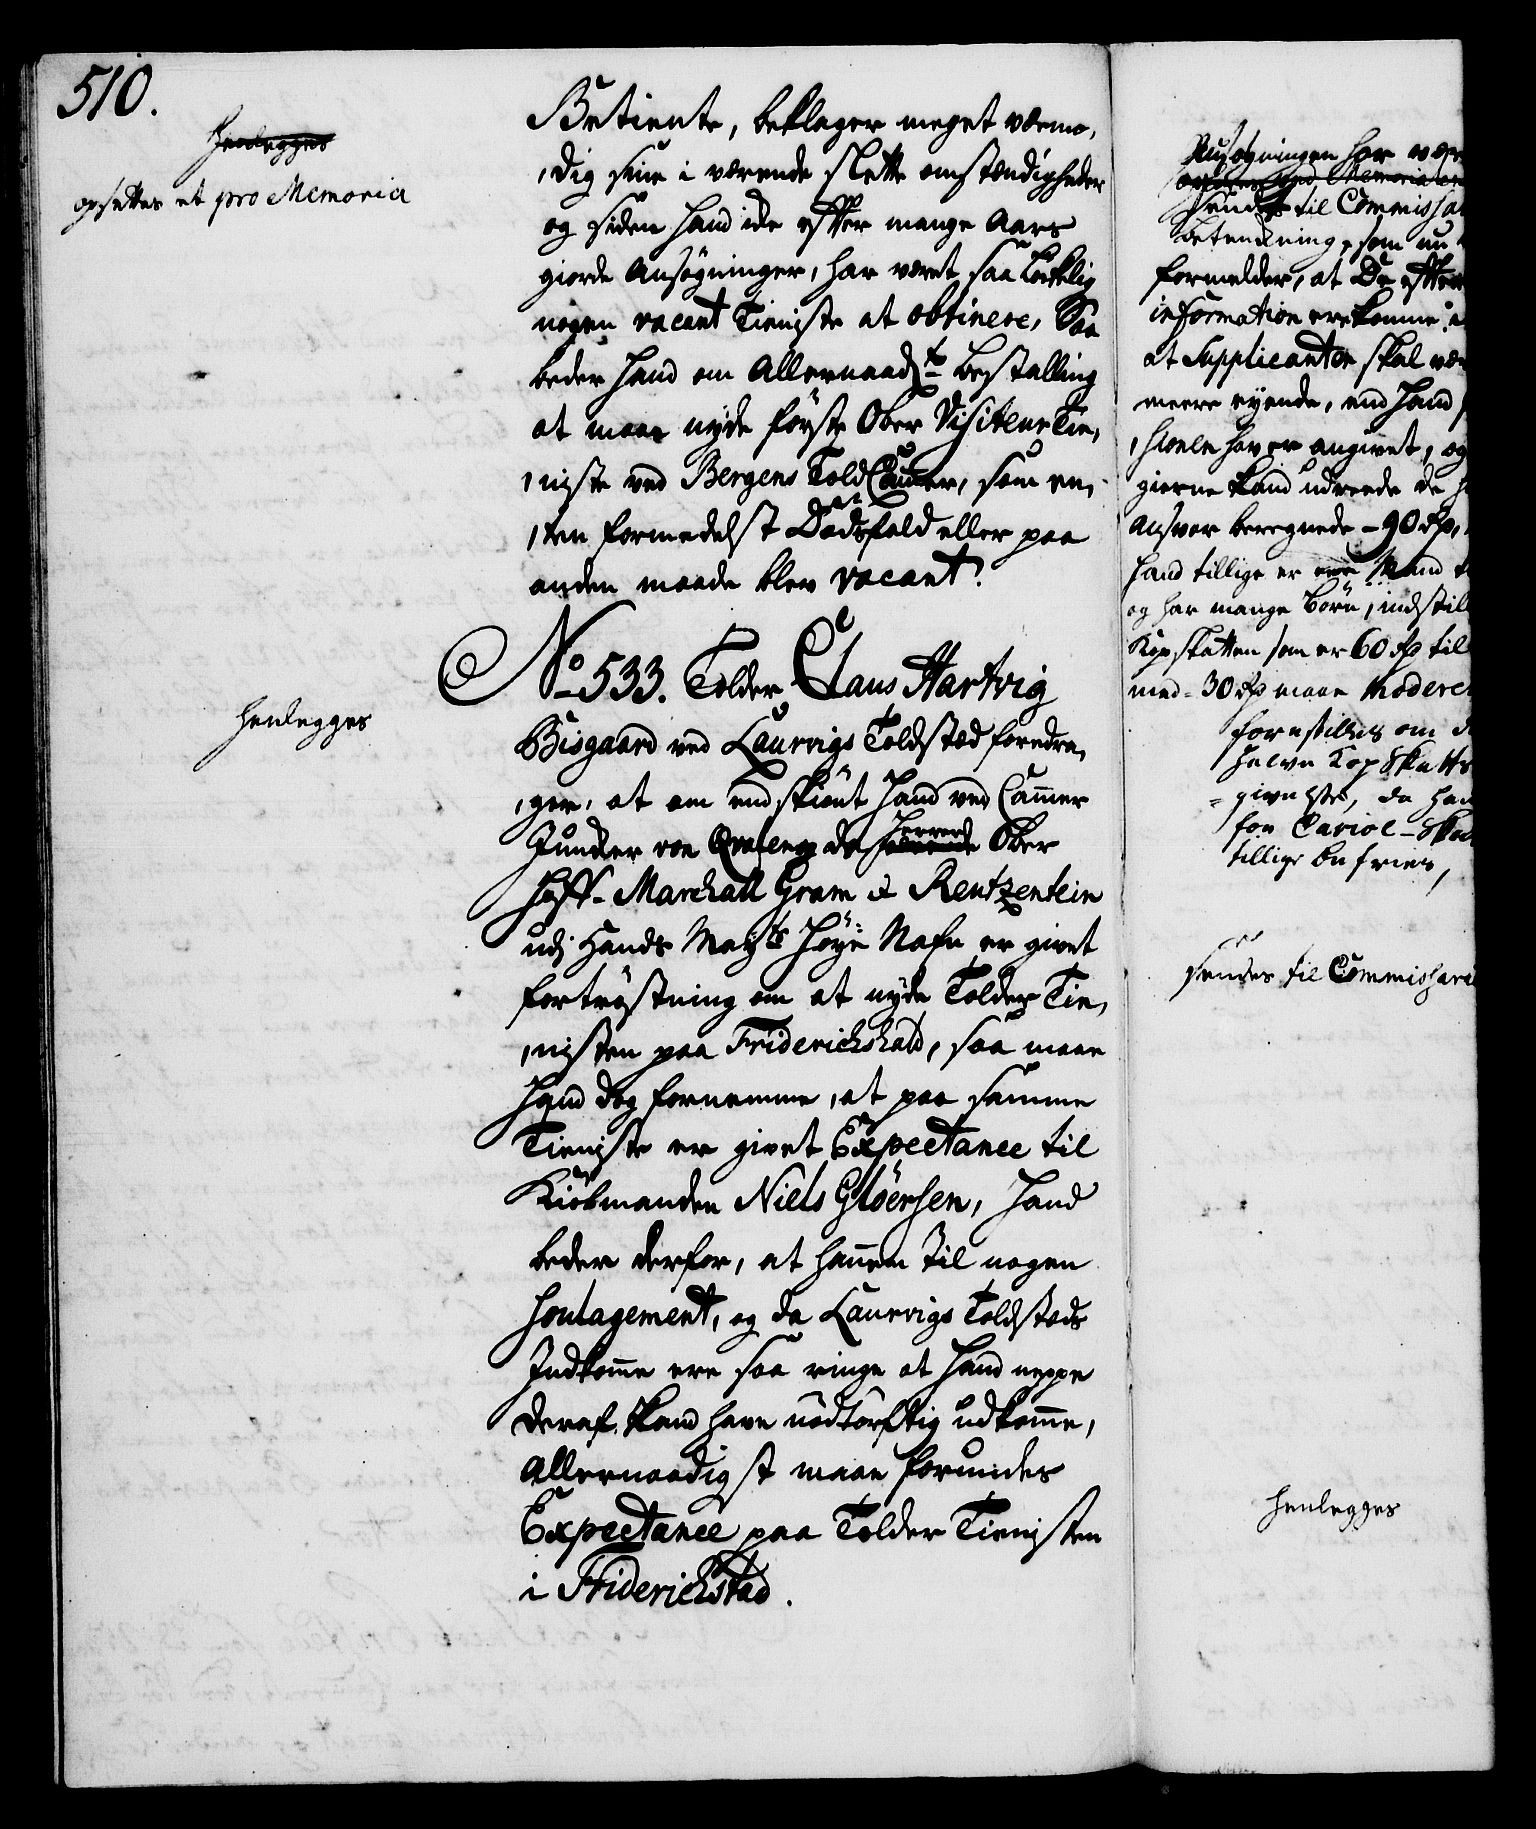 510.
Henlegges
opsættes et pro Memoria
Betiente, beklager meget veemo,
,dig sine i værende slette omstændigheder
og siden hand ide efter mange Aars
giorde Ansøgninger, har været saa Lykkelig
nogen vacant Tieniste at obtinere, Saa
beder hand om Allernaadste bestalling
at maae nyde første Ober Visiteur Tie,
,niste ved Bergens Told Cammer, som en,
,ten formedelst Dødsfald eller paa
anden maade blev vacant.
No 533. Tolder Claus Hartvig
Bisgaard ved Laurvigs Toldsted foredra,
,ger, at om endskiønt hand ved Cammer
Juncker von Qvalen da Herrens Ober
Hoff-Marchall Gram & Rentzentein
udj Hands Mayts Høye Nafn er givet
fortrøstning om at nyde Tolder Tie,
,nisten paa Friderichshald, saa maae
hand dog fornemme, at paa samme
Tieniste er givet Expectance til
Kiøbmanden Niels Gløersen, hand
beder derfor, at hannem til nogen
Soulagement, og da Laurvigs Toldsteds
Indkomme ere saa ringe at hand neppe
deraf kand have nødtørftig udkomme,
Allernaadigst maae forundes
Expectance paa Tolder Tienisten
i Friderichstad.
henlegges
Ansøgningen har vær
sendt til Commissa
betenkning, som nu
formelder, at De efter
information erekomme
at Supplicanten skal vær
meere eyende, end hand
hiele hav er angivet, og
gierne kand udreede de
Ansvar beregnede - 90 rdr,
hand tillige er en Mand
og har mange børn, indstil
Kopskatten som er 60 rdr til
med - 30 rdr maae Moderer
forestilles om d
halve Kop Skatts
= givelse, da han
for Cariol-Skat
tillige befries,
sendes til Commissari
henlegges